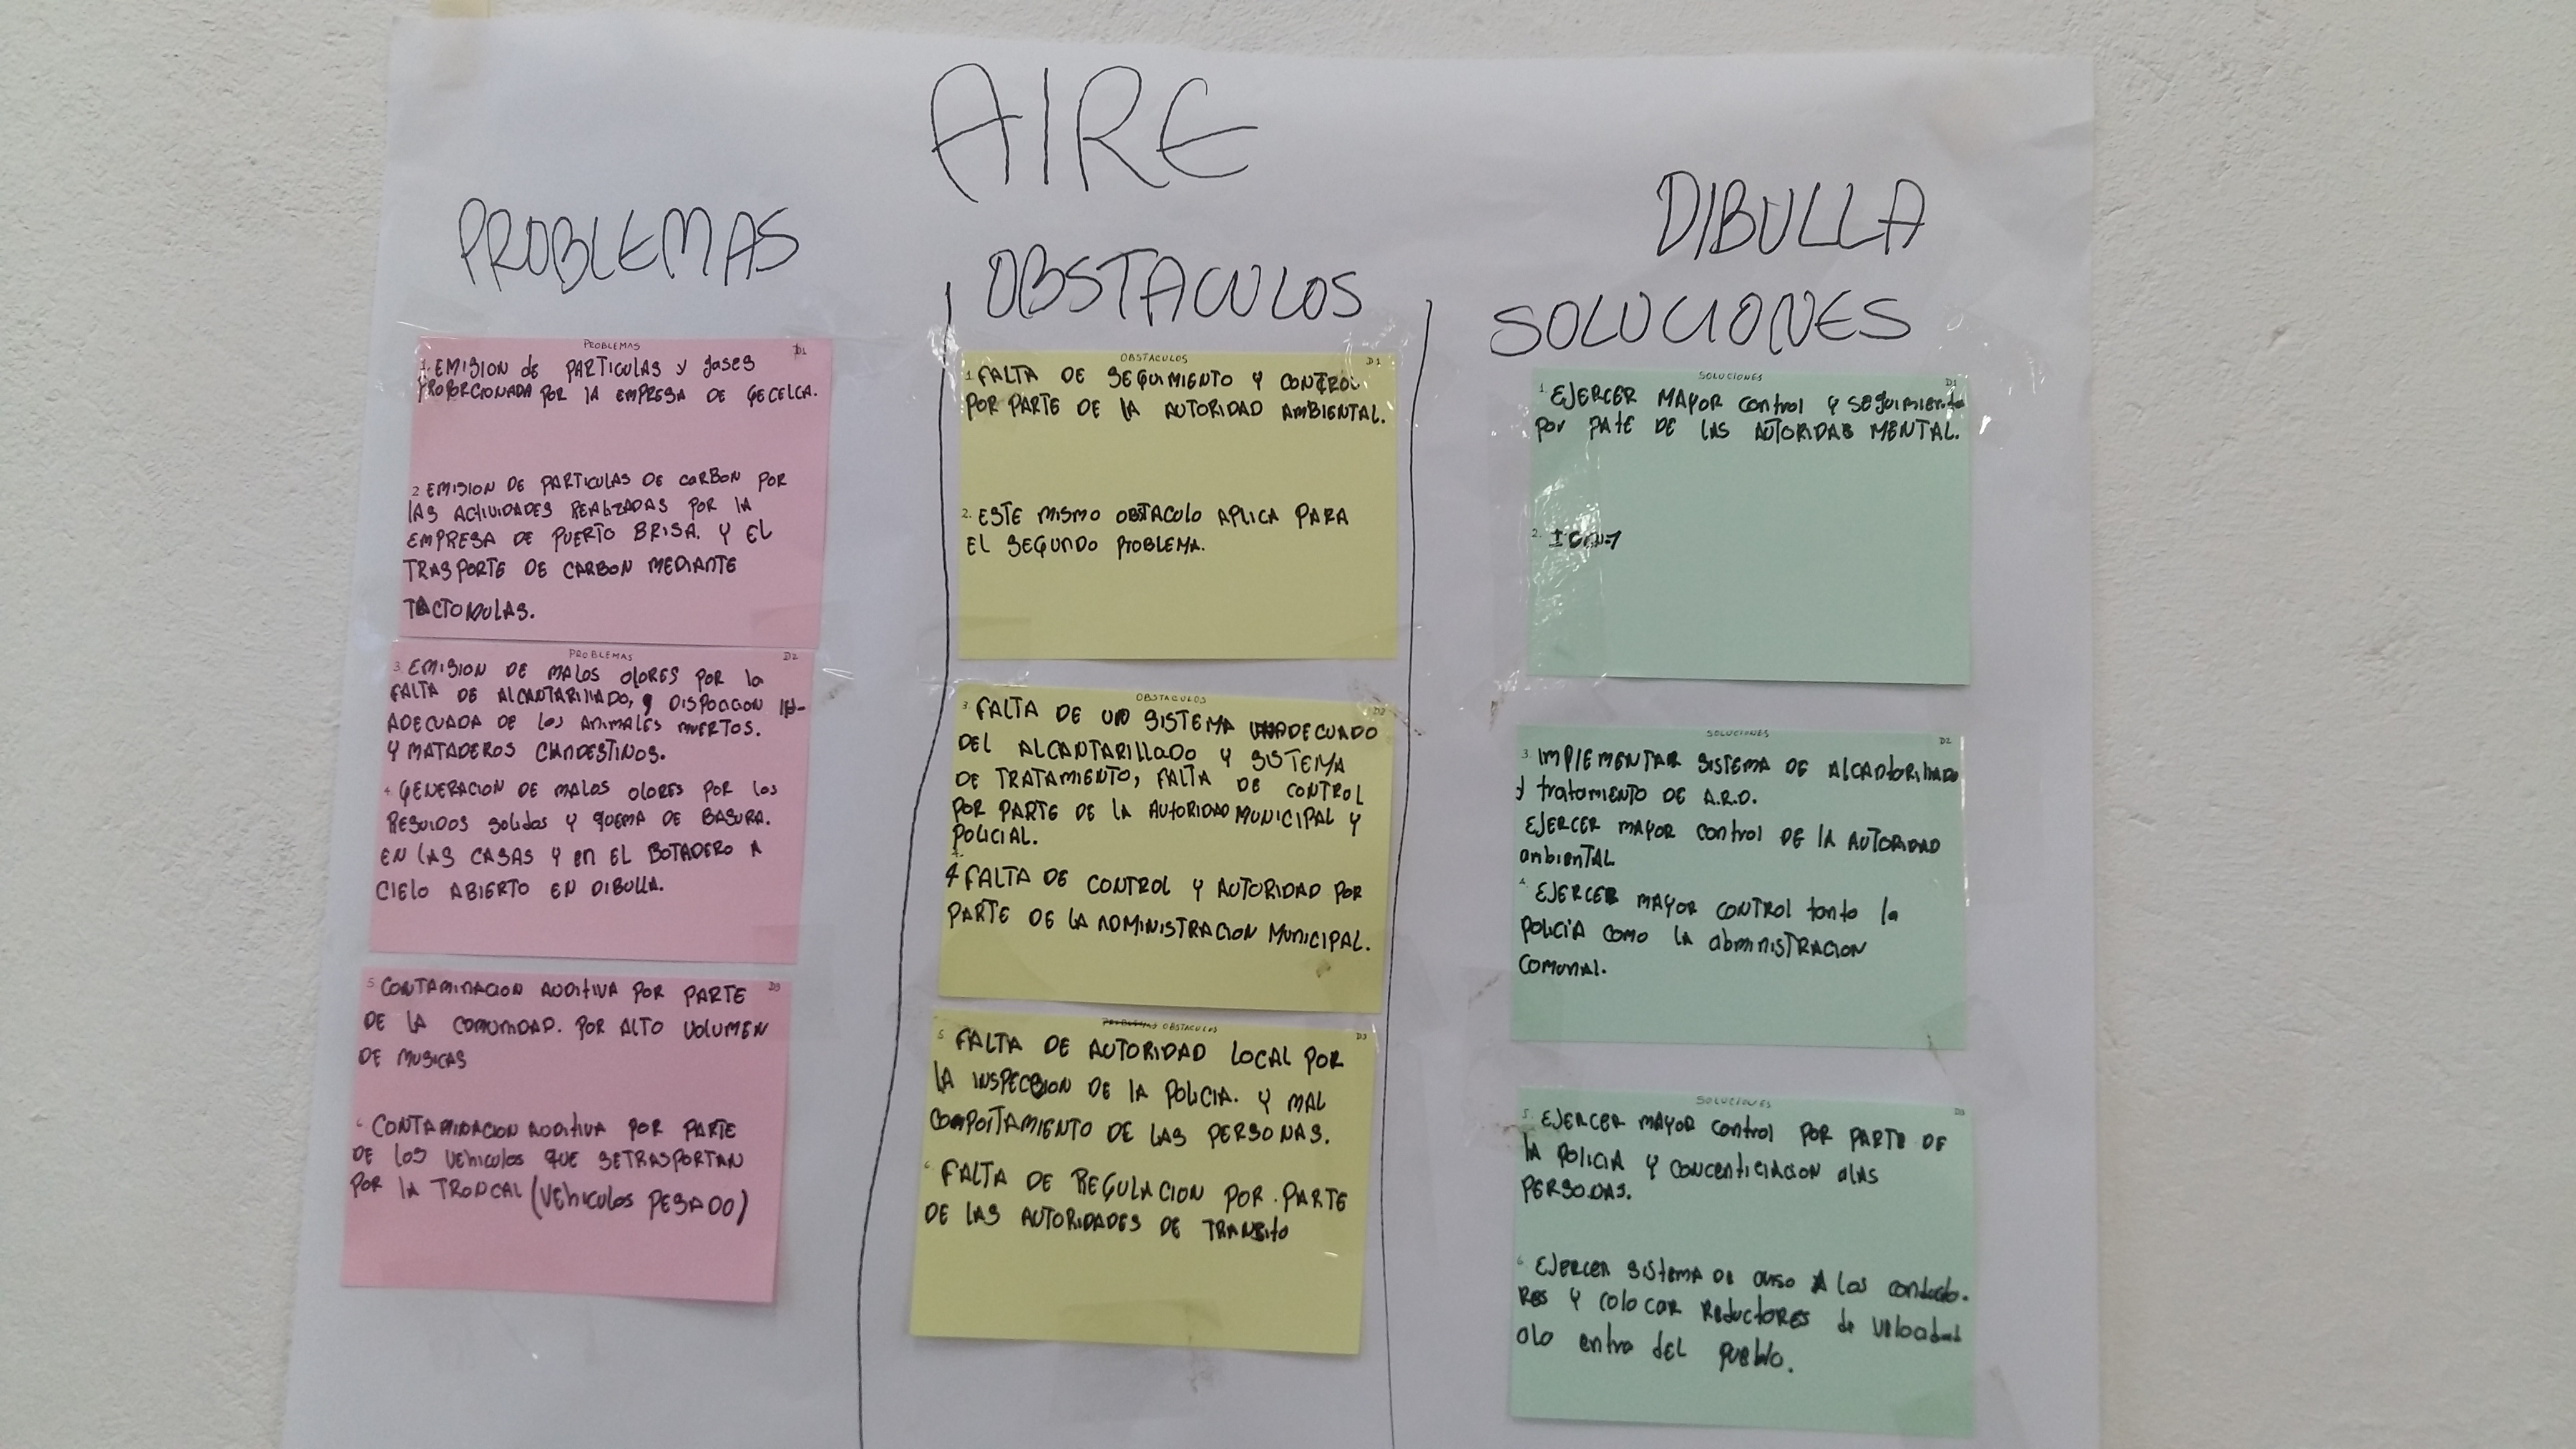 AIRE
DIBULLA
PROBLEMAS
PROBLEMAS D1
1. EMISION de PARTICULAS y gases
PROPORCIONADA POR LA EMPRESA DE GECELCA.
2 EMISION DE PARTICULAS DE CARBON POR
LAS ACTIVIDADES REALIZADAS POR LA
EMPRESA DE PUERTO BRISA. Y EL
TRASPORTE DE CARBON MEDIANTE
TACTOMULAS.
PROBLEMAS D2
3. EMISION DE MALOS OLORES POR la
FALTA DE ALCANTARILLADO, y DISPOCION IN-
ADECUADA DE LOS ANIMALES MUERTOS.
Y MATADEROS CLANDESTINOS.
4. GENERACION DE MALOS OLORES POR LOS
RESUIDOS SOLIDOS Y QUEMA DE BASURA.
EN LAS CASAS Y en EL BOTADERO A
CIELO ABIERTO EN DIBULLA.
D3
5 CONTAMINACION AUDITIVA POR PARTE
DE LA COMUNIDAD. POR ALTO VOLUMEN
DE MUSICAS
6 CONTAMINACION AUDITIVA POR PARTE
DE LOS VEHICULOS QUE SETRASPORTAN
POR LA TRONCAL (VEHICULOS PESADO)
OBSTACULOS
OBSTACULOS D1
1 FALTA DE SEGUIMIENTO Y CONTROL
POR PARTE DE LA AUTORIDAD AMBIENTAL.
2. ESTE MISMO OBSTACULO APLICA PARA
EL SEGUNDO PROBLEMA.
OBSTACULOS D2
3. FALTA DE UN SISTEMA ADECUADO
DEL ALCANTARILLADO Y SISTEMA
DE TRATAMIENTO, FALTA DE CONTROL
POR PARTE DE LA AUTORIDAD MUNICIPAL Y
POLICIAL.
4 FALTA DE CONTROL Y AUTORIDAD POR
PARTE DE LA ADMINISTRACION MUNICIPAL.
PROBLEMAS OBSTACULOS D3
5 FALTA DE AUTORIDAD LOCAL POR
LA INSPECCION DE LA POLICIA. Y MAL
COMPOITAMIENTO DE LAS PERSONAS.
6 FALTA DE REGULACION POR PARTE
DE LAS AUTORIDADES DE TRANSITO
SOLUCIONES
SOLUCIONES D1
1. EJERCER MAYOR control Y SEGUIMIENTO
por PATE DE LAS AUTORIDAB MENTAL.
2.
SOLUCIONES D2
3. IMPLEMENTAR SISTEMA DE ALCANTARILLADO
y tratamiento DE A.R.D.
EJERCER MAYOR control DE LA AUTORIDAD
ambienTAL
4. EJERCER MAYOR CONTROL tanto la
POLICIA COMO LA abminISTRACION
COMUNAL.
SOLUCIONES D3
5. EJERCER MAYOR control POR PARTE DE
LA POLICIA Y CONCENTICIACION alas
PERSONAS.
6 EJERCER SISTEMA DE aviso A Los conducto-
RES Y COLOCAR REDUCTORES de Velocidad
alo entra DEL PUEBLO.